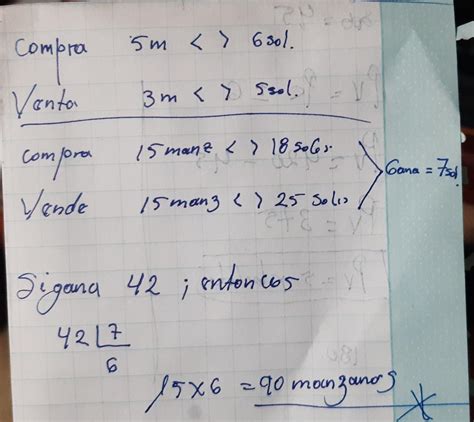 Compra 5m < > 6sol.
Venta 3m < > 5sol.
compra 15manz < > 18soles
Vende 15manz < > 25 soles
Gana = 7sol.
Si gana 42 ; entonces
42 | 7
6
15x6 = 90 manzanas